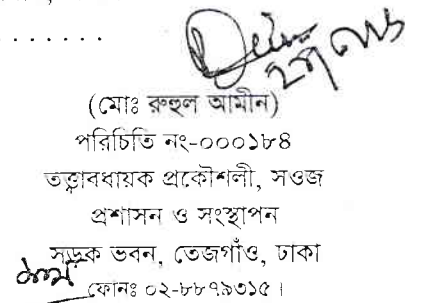 . . . . . . .
(মোঃ রুহুল আমীন)
পরিচিতি নং-০০০১৮৪
তত্ত্বাবধায়ক প্রকৌশলী, সওজ
প্রশাসন ও সংস্থাপন
সড়ক ভবন, তেজগাঁও, ঢাকা
ফোনঃ ০২-৮৮৭৯৩১৫।